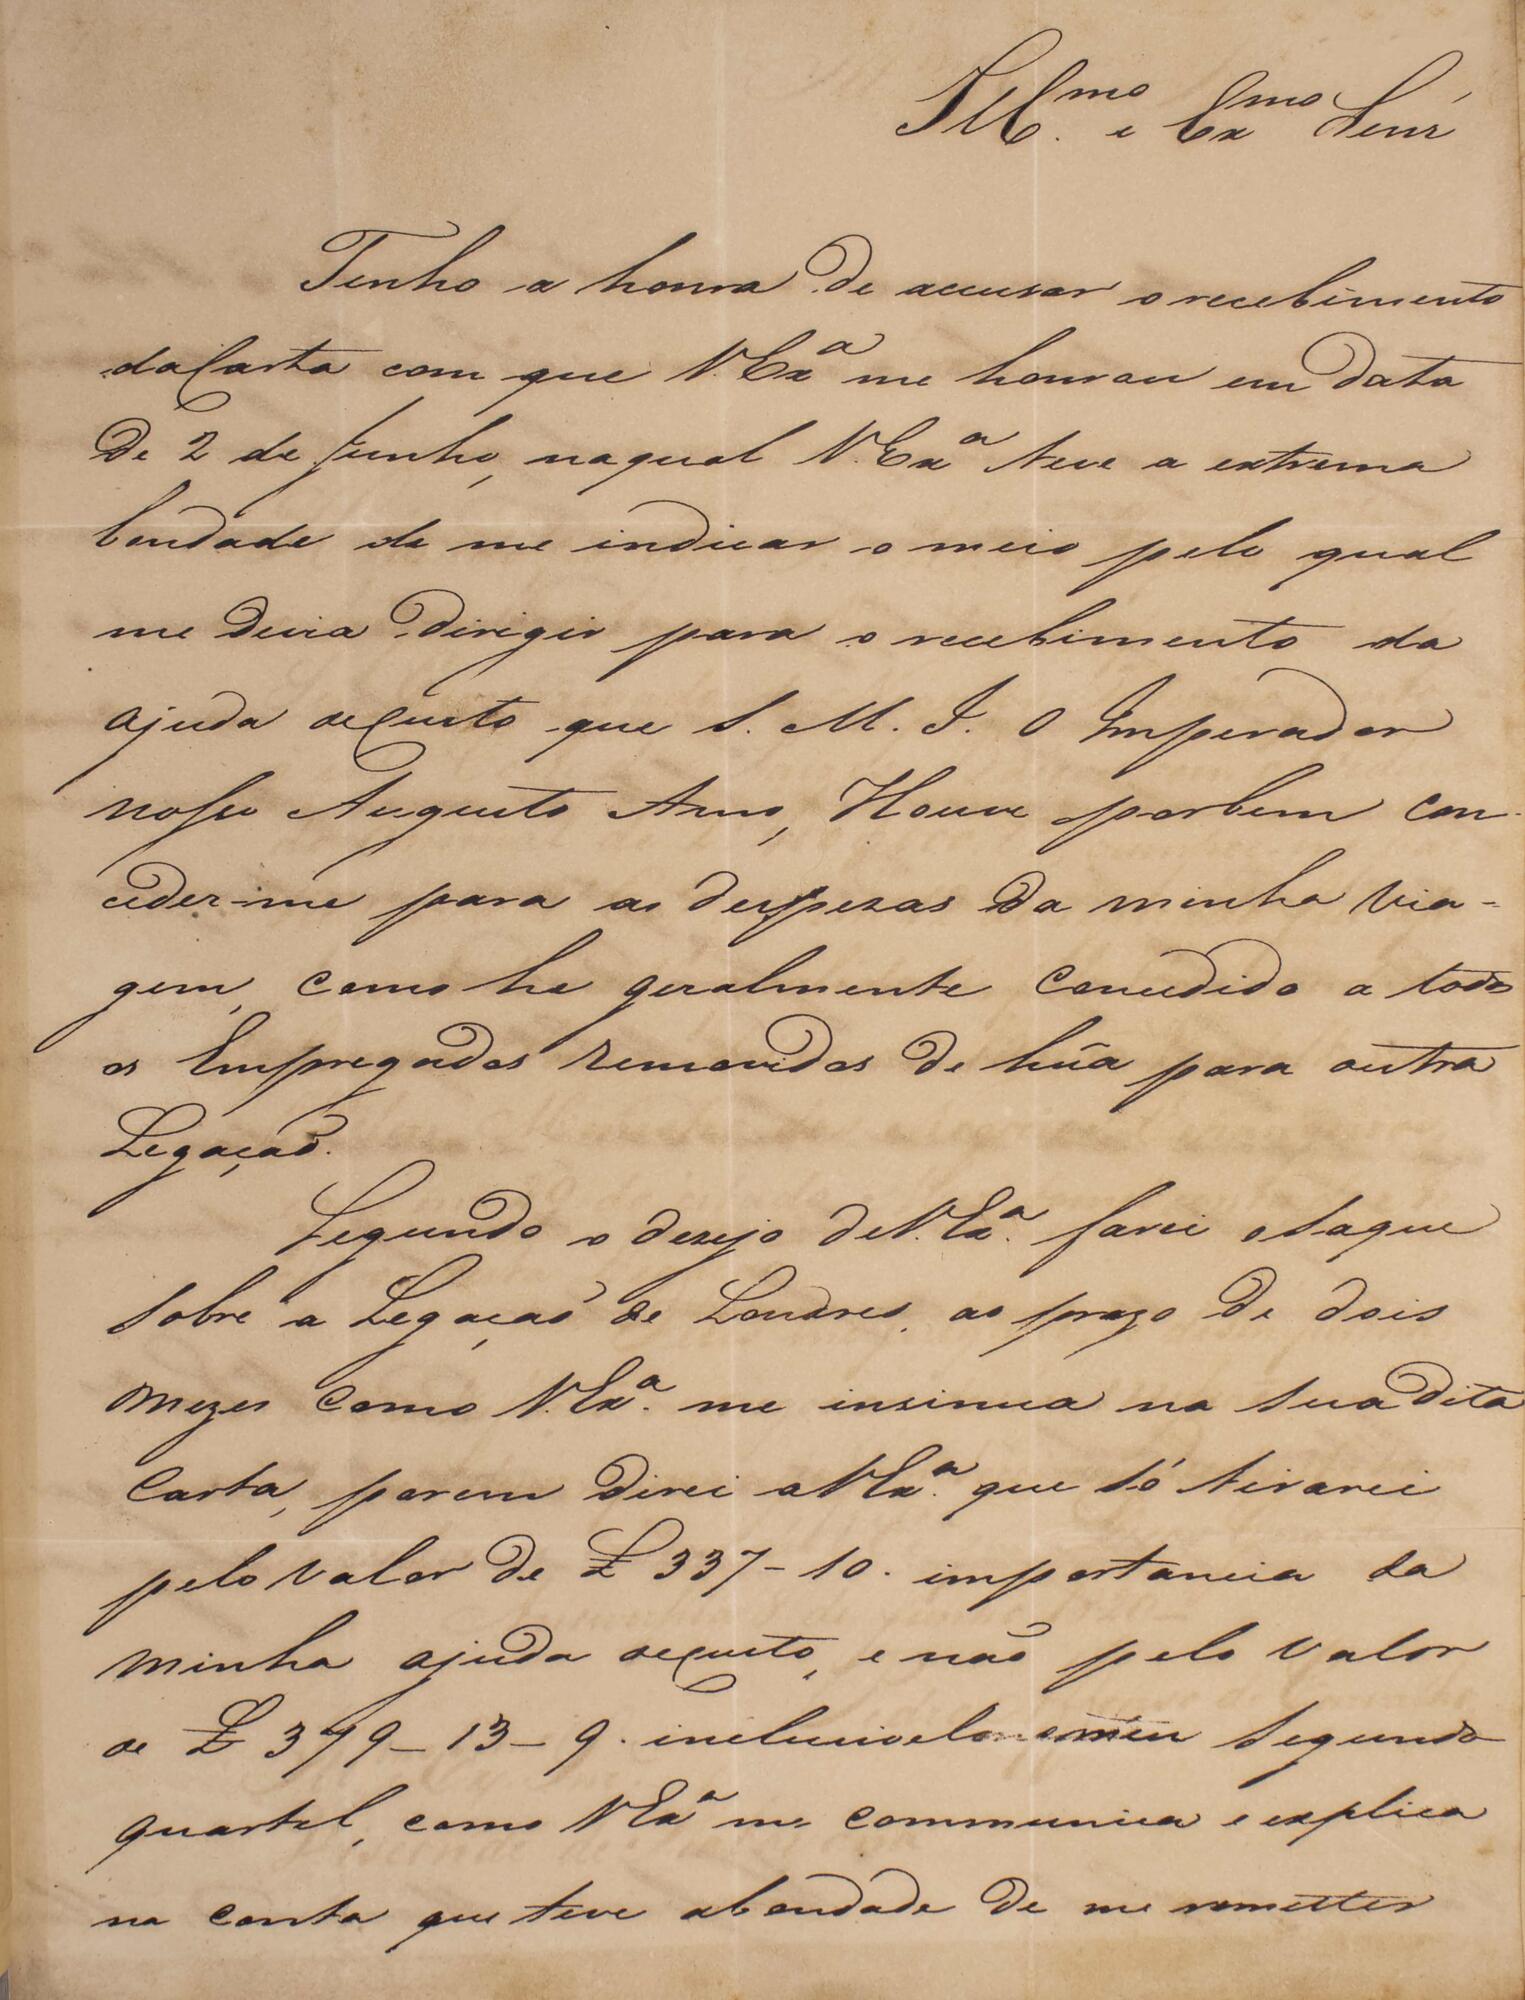 Ill.mo e Ex.mo Senr.
Tenho a honra de accusar o recebimento
da Carta com que V. Exa. me honrou em data
de 2 de Junho, na qual V. Exa. teve a extrema
bondade de me indicar o meio pelo qual
me devia dirigir para o recebimento da
ajuda de Custo que S. M. I. O Imperador
nosso Augusto Amo, Houve por bem con-
ceder-me para as despezas da minha via-
gem, como he geralmente concedido a todos
os Empregados removidos de hũa para outra
Legação.
Segundo o desejo de V. Exa. farei o Saque
sobre a Legação de Londres, ao prazo de dois
mezes como V. Exa. me insinua na sua dita
Carta, porem direi a V. Exa. que só tirarei
pelo valor de £ 337-10. importancia da
minha ajuda de Custo, e não pelo valor
de £ 379-13-9. inclusive o meu segundo
quartel, como V. Exa. me communica e explica
na conta que teve a bondade de me remetter